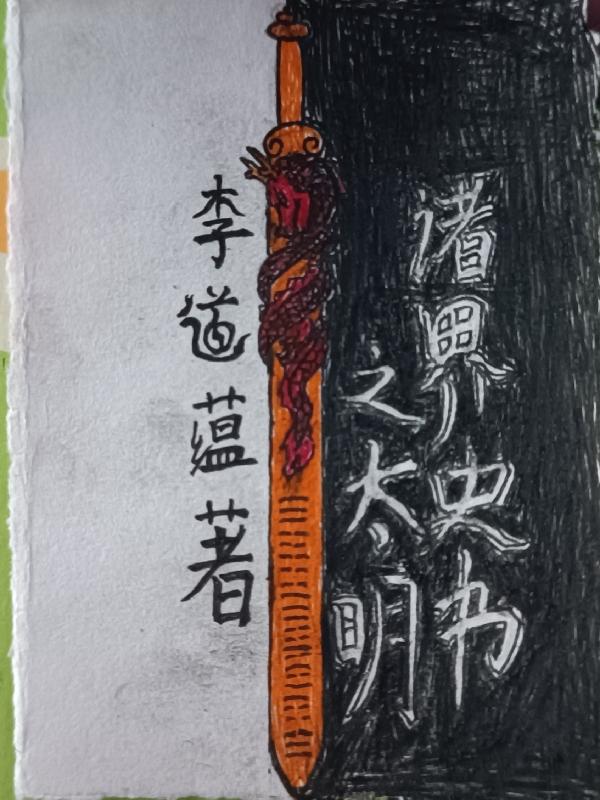 诸界史书
之大明
李道蕴著